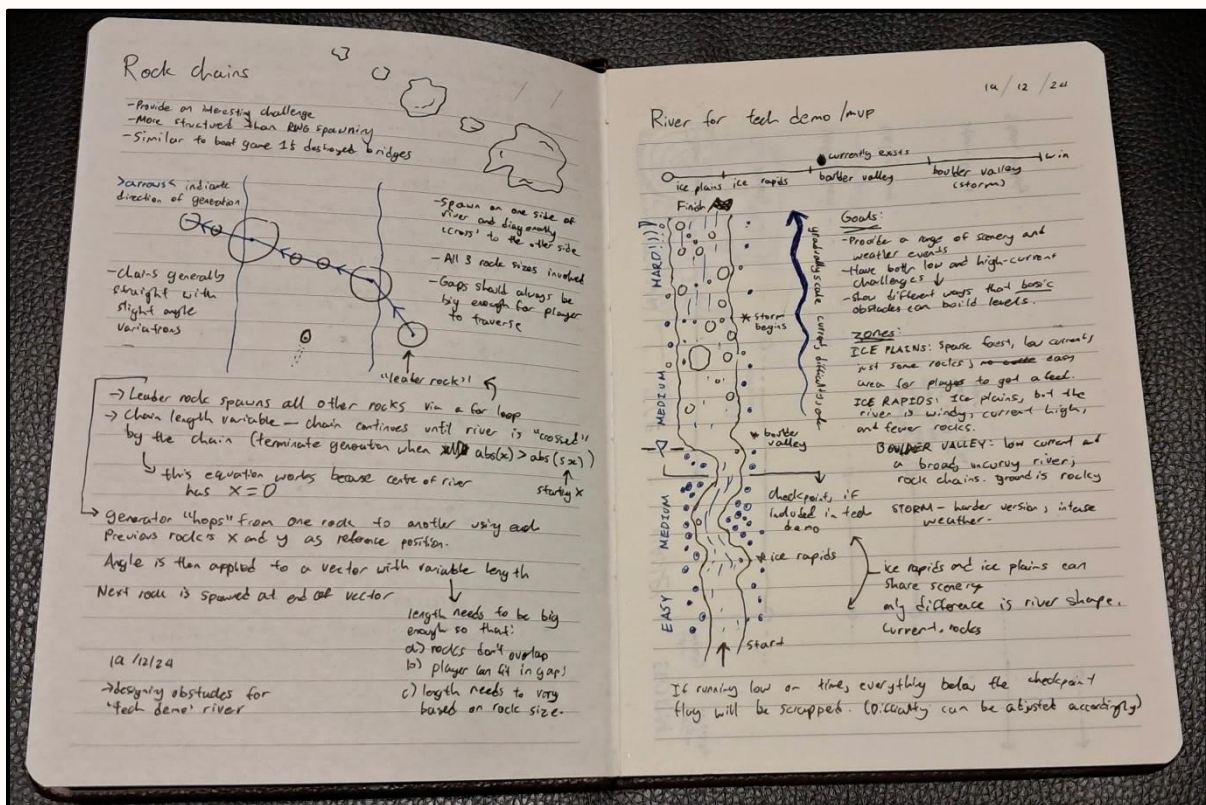 Rock chains
-Provide an interesting challenge
-More structured than RNG spawning
-Similar to boat game 1's destroyed bridges
>arrows< indicate
direction of generation
-Spawn on one side of
river and diagonally
'cross' to the other side
-All 3 rock sizes involved
-Gaps should always be
big enough for player
to traverse
-chains generally
straight with
slight angle
variations
"leader rock"
→ Leader rock spawns all other rocks via a for loop
→ Chain length variable - chain continues until river is "crossed"
by the chain (terminate generation when abs(x) > abs(sx))
starting x
this equation works because centre of river
has x=0
generator "hops" from one rock to another using each
previous rock's x and y as reference position.
Angle is then applied to a vector with variable length
Next rock is spawned at end of vector
length needs to be big
enough so that:
a) rocks don't overlap
b) player can fit in gap!
c) length needs to vary
based on rock size.
19/12/24
→designing obstacles for
'tech demo' river
19/12/24
River for tech demo/mvp
currently exists
ice plains
ice rapids
boulder valley
boulder valley
(storm)
win
Finish
HARD!!))
MEDIUM
MEDIUM
EASY
gradually scale current, difficulty
* storm
begins
* boulder
valley
checkpoint, if
included in tech
demo
* ice rapids
start
Goals:
-Provide a range of scenery and
weather events
-Have both low and high-current
challenges
-show different ways that basic
obstacles can build levels.
Zones:
ICE PLAINS: Sparse forest, low current,
just some rocks, easy
area for player to get a feel.
ICE RAPIDS: Ice plains, but the
river is windy, current high,
and fewer rocks.
BOULDER VALLEY: low current and
a broad, uncurvy river,
rock chains. ground is rocky
STORM - harder version, intense
weather.
ice rapids and ice plains can
share scenery
only difference is river shape,
current, rocks
If running low on time, everything below the checkpoint
flag will be scrapped. (Difficulty can be adjusted accordingly)